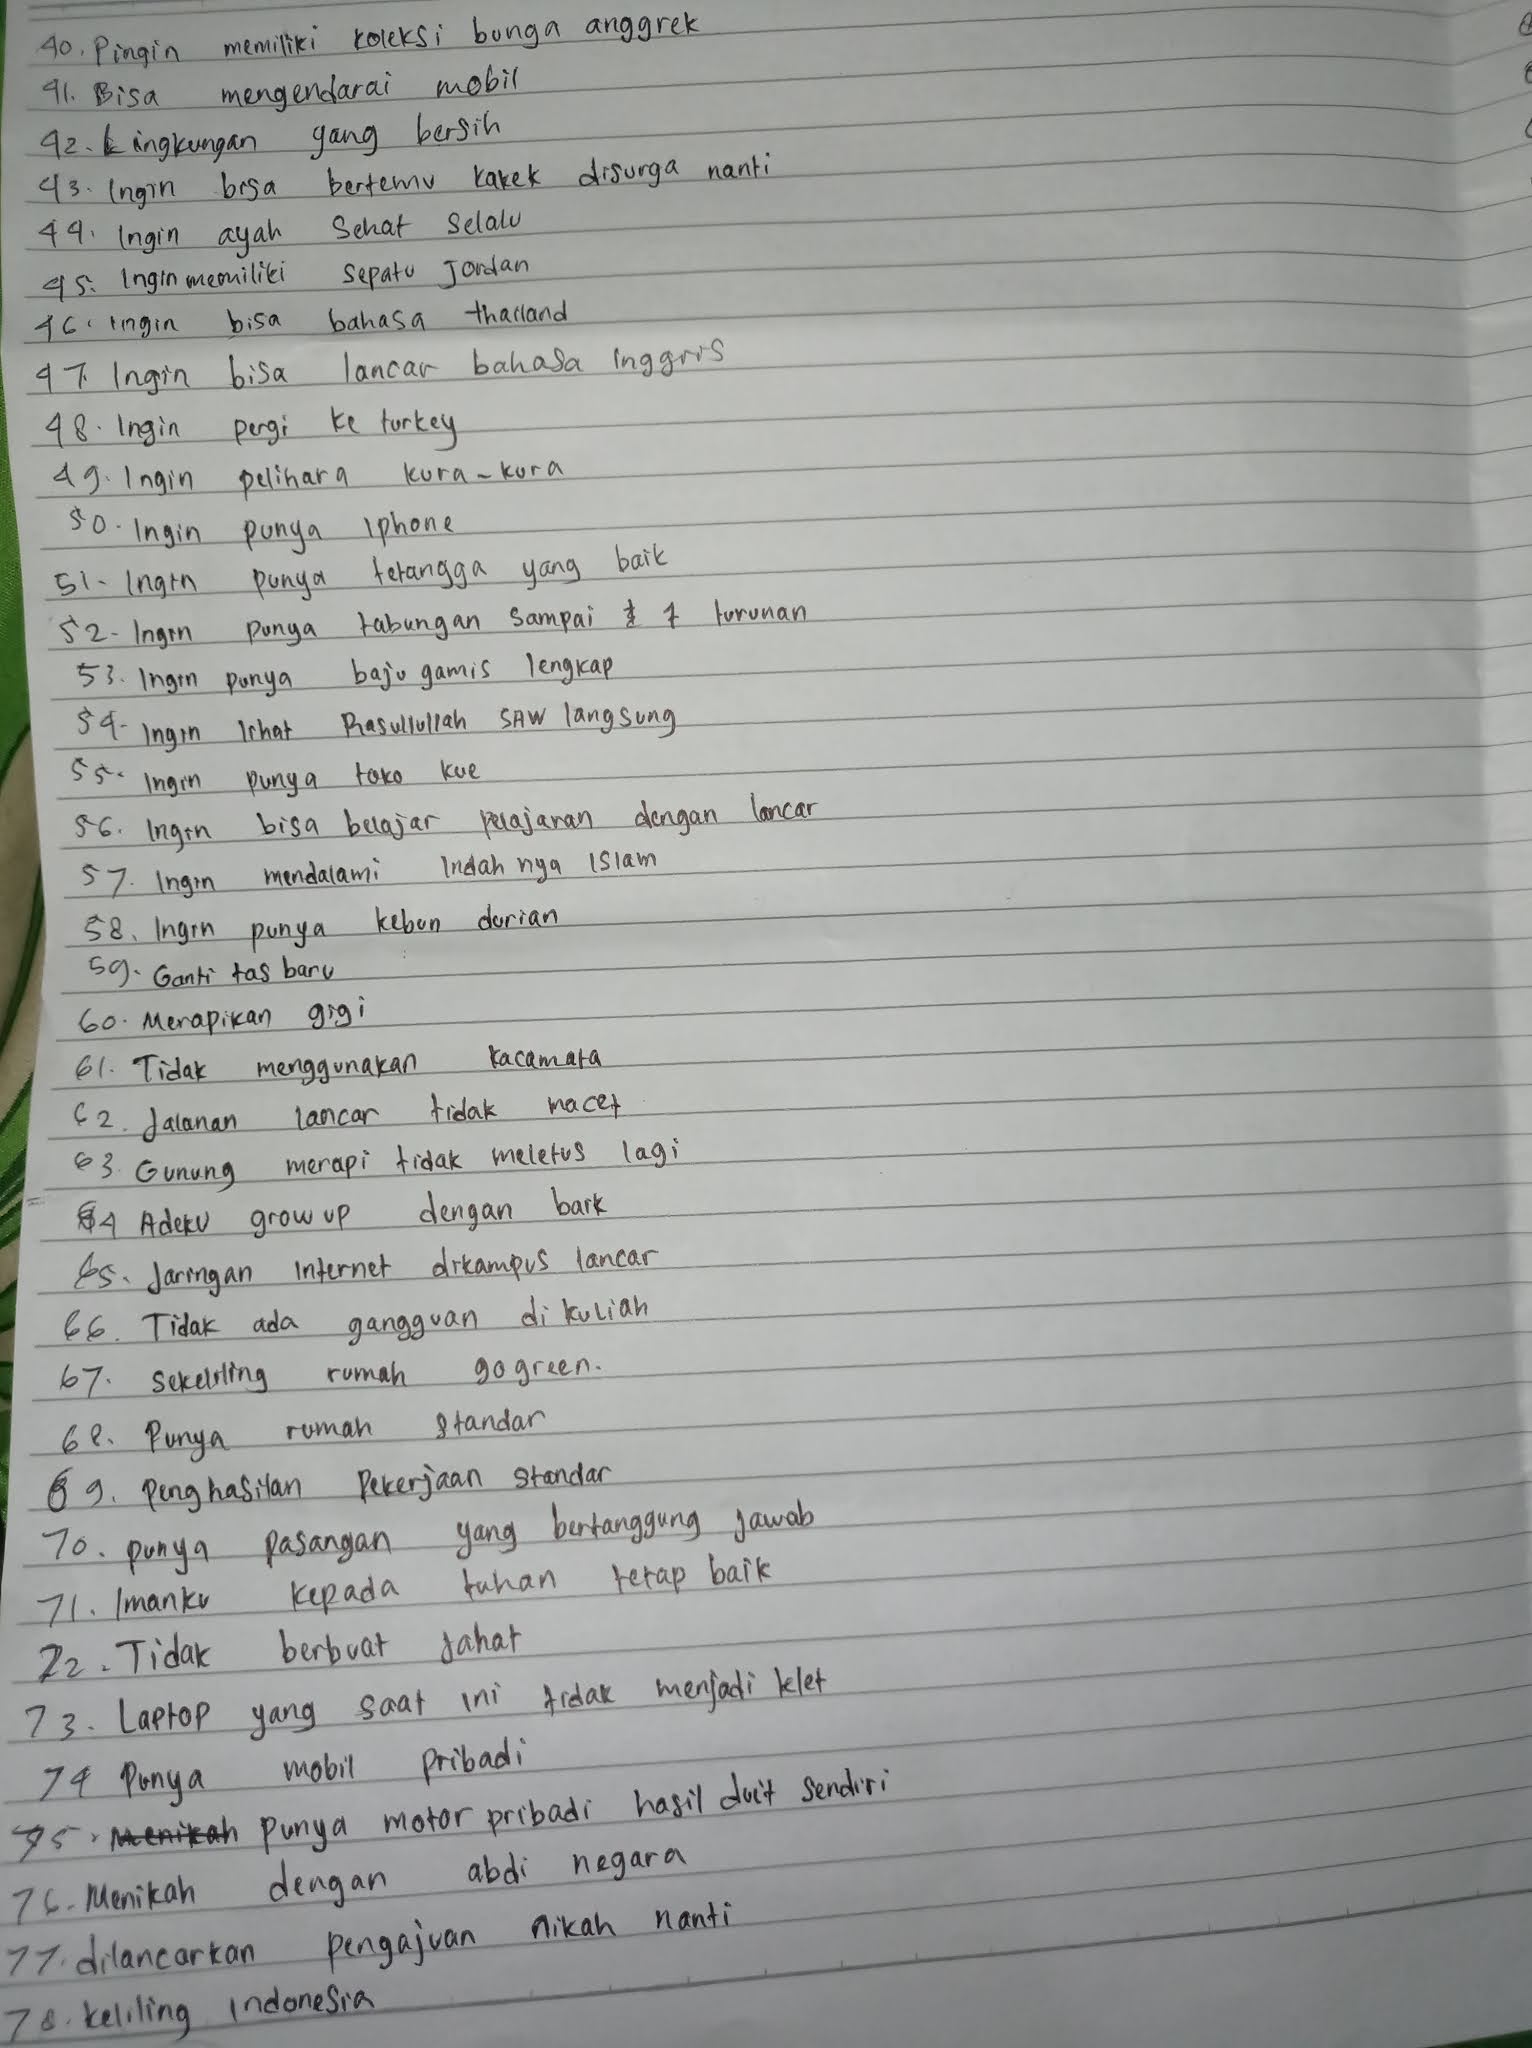 40. Pingin memiliki koleksi bunga anggrek
41. Bisa mengendarai mobil
42. Lingkungan yang bersih
43. Ingin bisa bertemu kakek disurga nanti
44. Ingin ayah sehat selalu
45. Ingin memiliki sepatu Jordan
46. Ingin bisa bahasa thailand
47. Ingin bisa lancar bahasa inggris
48. Ingin pergi ke turkey
49. Ingin pelihara kura-kura
50. Ingin punya Iphone
51. Ingin punya tetangga yang baik
52. Ingin punya tabungan sampai 7 turunan
53. Ingin punya baju gamis lengkap
54. Ingin lihat Rasullullah SAW langsung
55. Ingin punya toko kue
56. Ingin bisa belajar pelajaran dengan lancar
57. Ingin mendalami Indah nya Islam
58. Ingin punya kebun durian
59. Ganti tas baru
60. Merapikan gigi
61. Tidak menggunakan kacamata
62. Jalanan lancar tidak macet
63. Gunung merapi tidak meletus lagi
64 Adeku grow up dengan baik
65. Jaringan internet dikampus lancar
66. Tidak ada gangguan di kuliah
67. Sekeliling rumah go green.
68. Punya rumah standar
69. Penghasilan Pekerjaan standar
70. punya pasangan yang bertanggung jawab
71. Imanku kepada tuhan tetap baik
72. Tidak berbuat jahat
73. Laptop yang saat ini tidak menjadi klet
74 Punya mobil pribadi
75. Menikah punya motor pribadi hasil duit sendiri
76. Menikah dengan abdi negara
77. dilancarkan pengajuan nikah nanti
78. keliling Indonesia